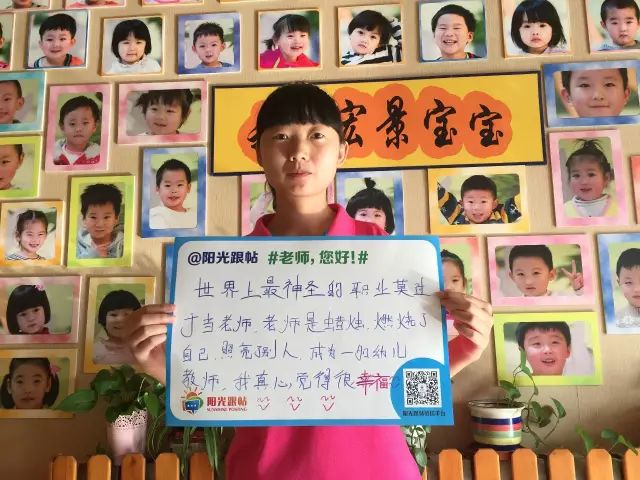 宏景宝宝
@阳光跟帖 #老师,您好!#
世界上最神圣的职业莫过
于当老师.老师是蜡烛.燃烧了
自己.照亮别人.成为一的幼儿
教师.我真心觉得很幸福
阳光跟帖
SUNSHINE POSTING